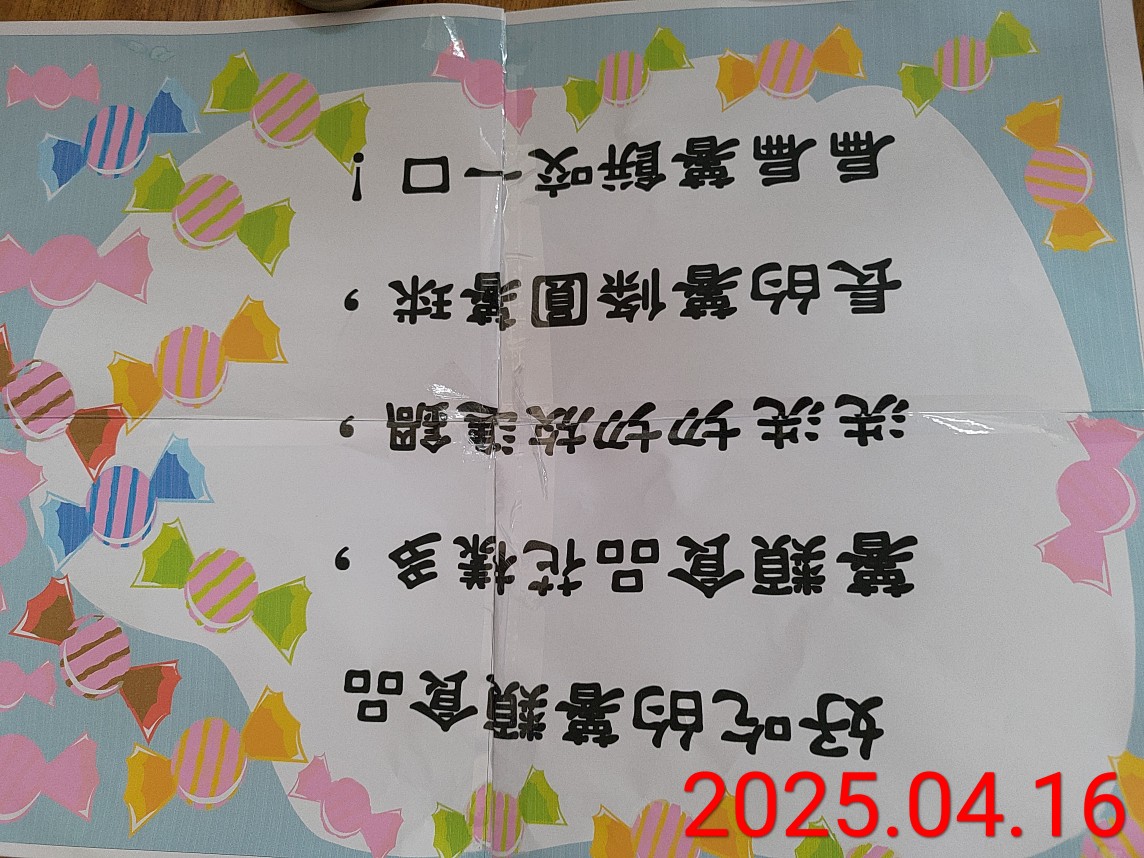 好吃的薯類食品
薯類食品花樣多，
洗洗切切放進鍋，
長的薯條圓薯球，
扁扁薯餅咬一口！
2025.04.16